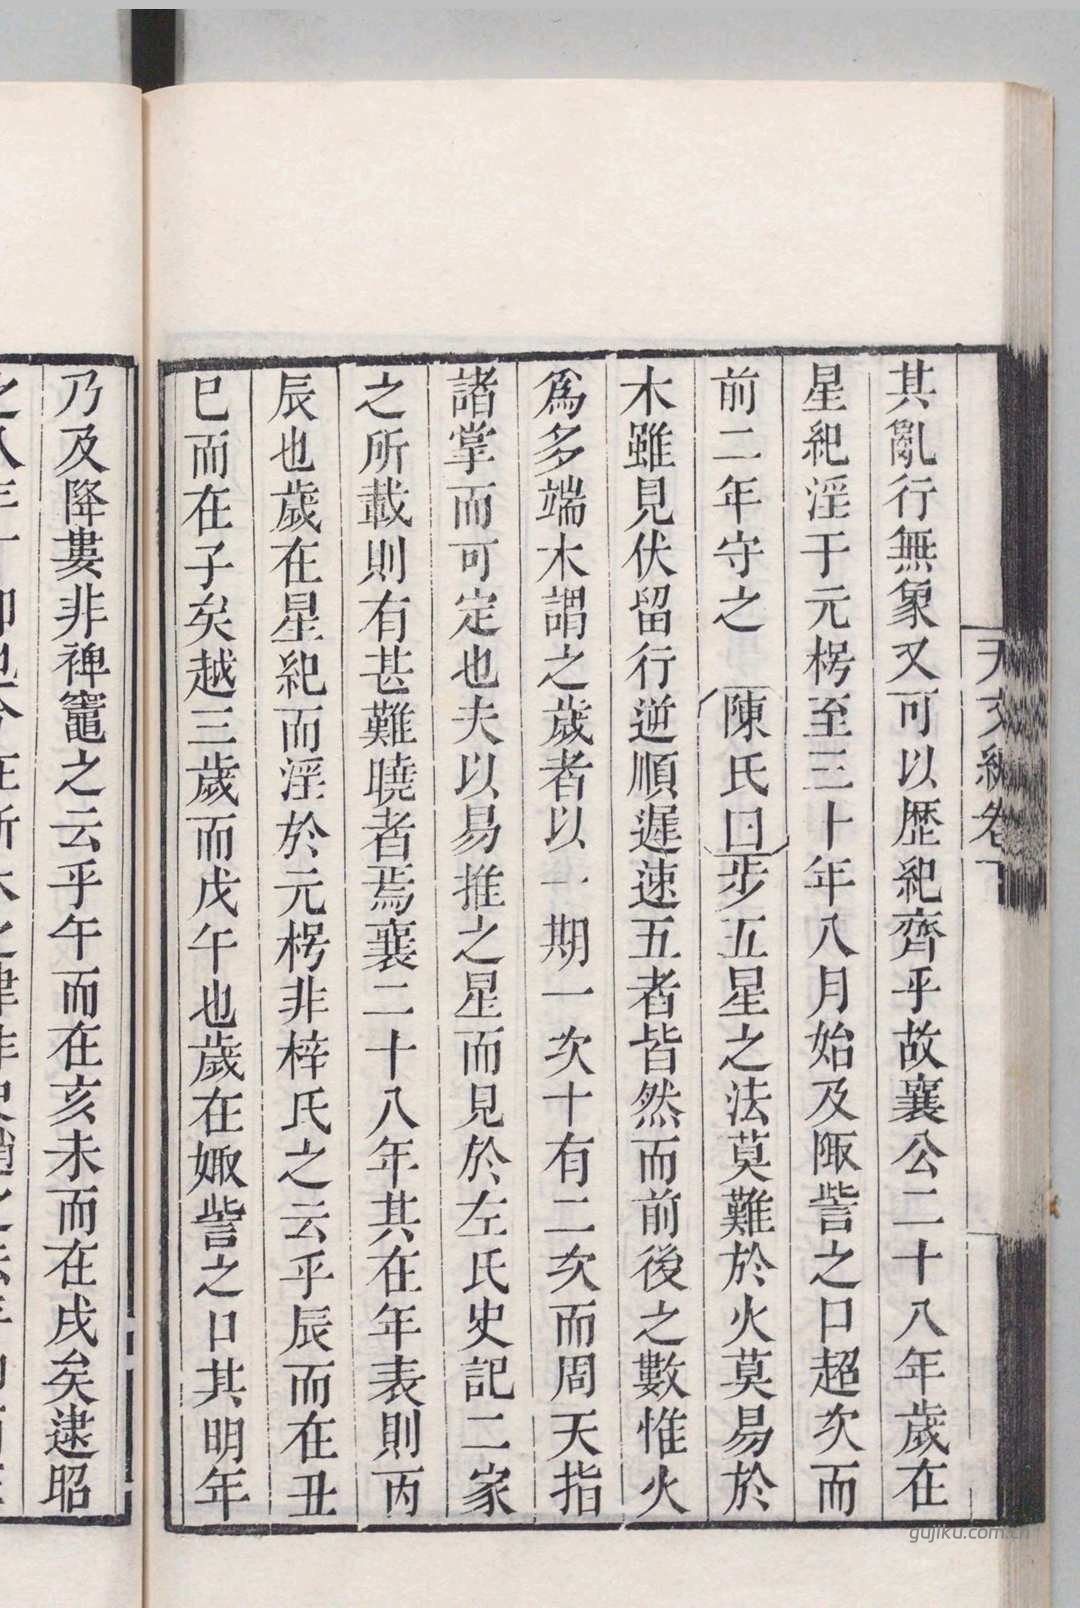 天文編卷
其亂行無象又可以歷紀齊乎故襄公二十八年歲在
星紀淫于元枵至三十年八月始及陬訾之口超次而
前二年守之 陳氏曰步五星之法莫難於火莫易於
木雖見伏留行逆順遲速五者皆然而前後之數惟火
為多端木謂之歲者以一期一次十有二次而周天指
諸掌而可定也夫以易推之星而見於左氏史記二家
之所載則有甚難曉者焉襄二十八年其在年表則丙
辰也歲在星紀而淫於元枵非梓氏之云乎辰而在丑
巳而在子矣越三歲而戊午也歲在娵訾之口其明年
乃及降婁非裨竈之云乎午而在亥未而在戌矣逮昭
gujiku.com.cn